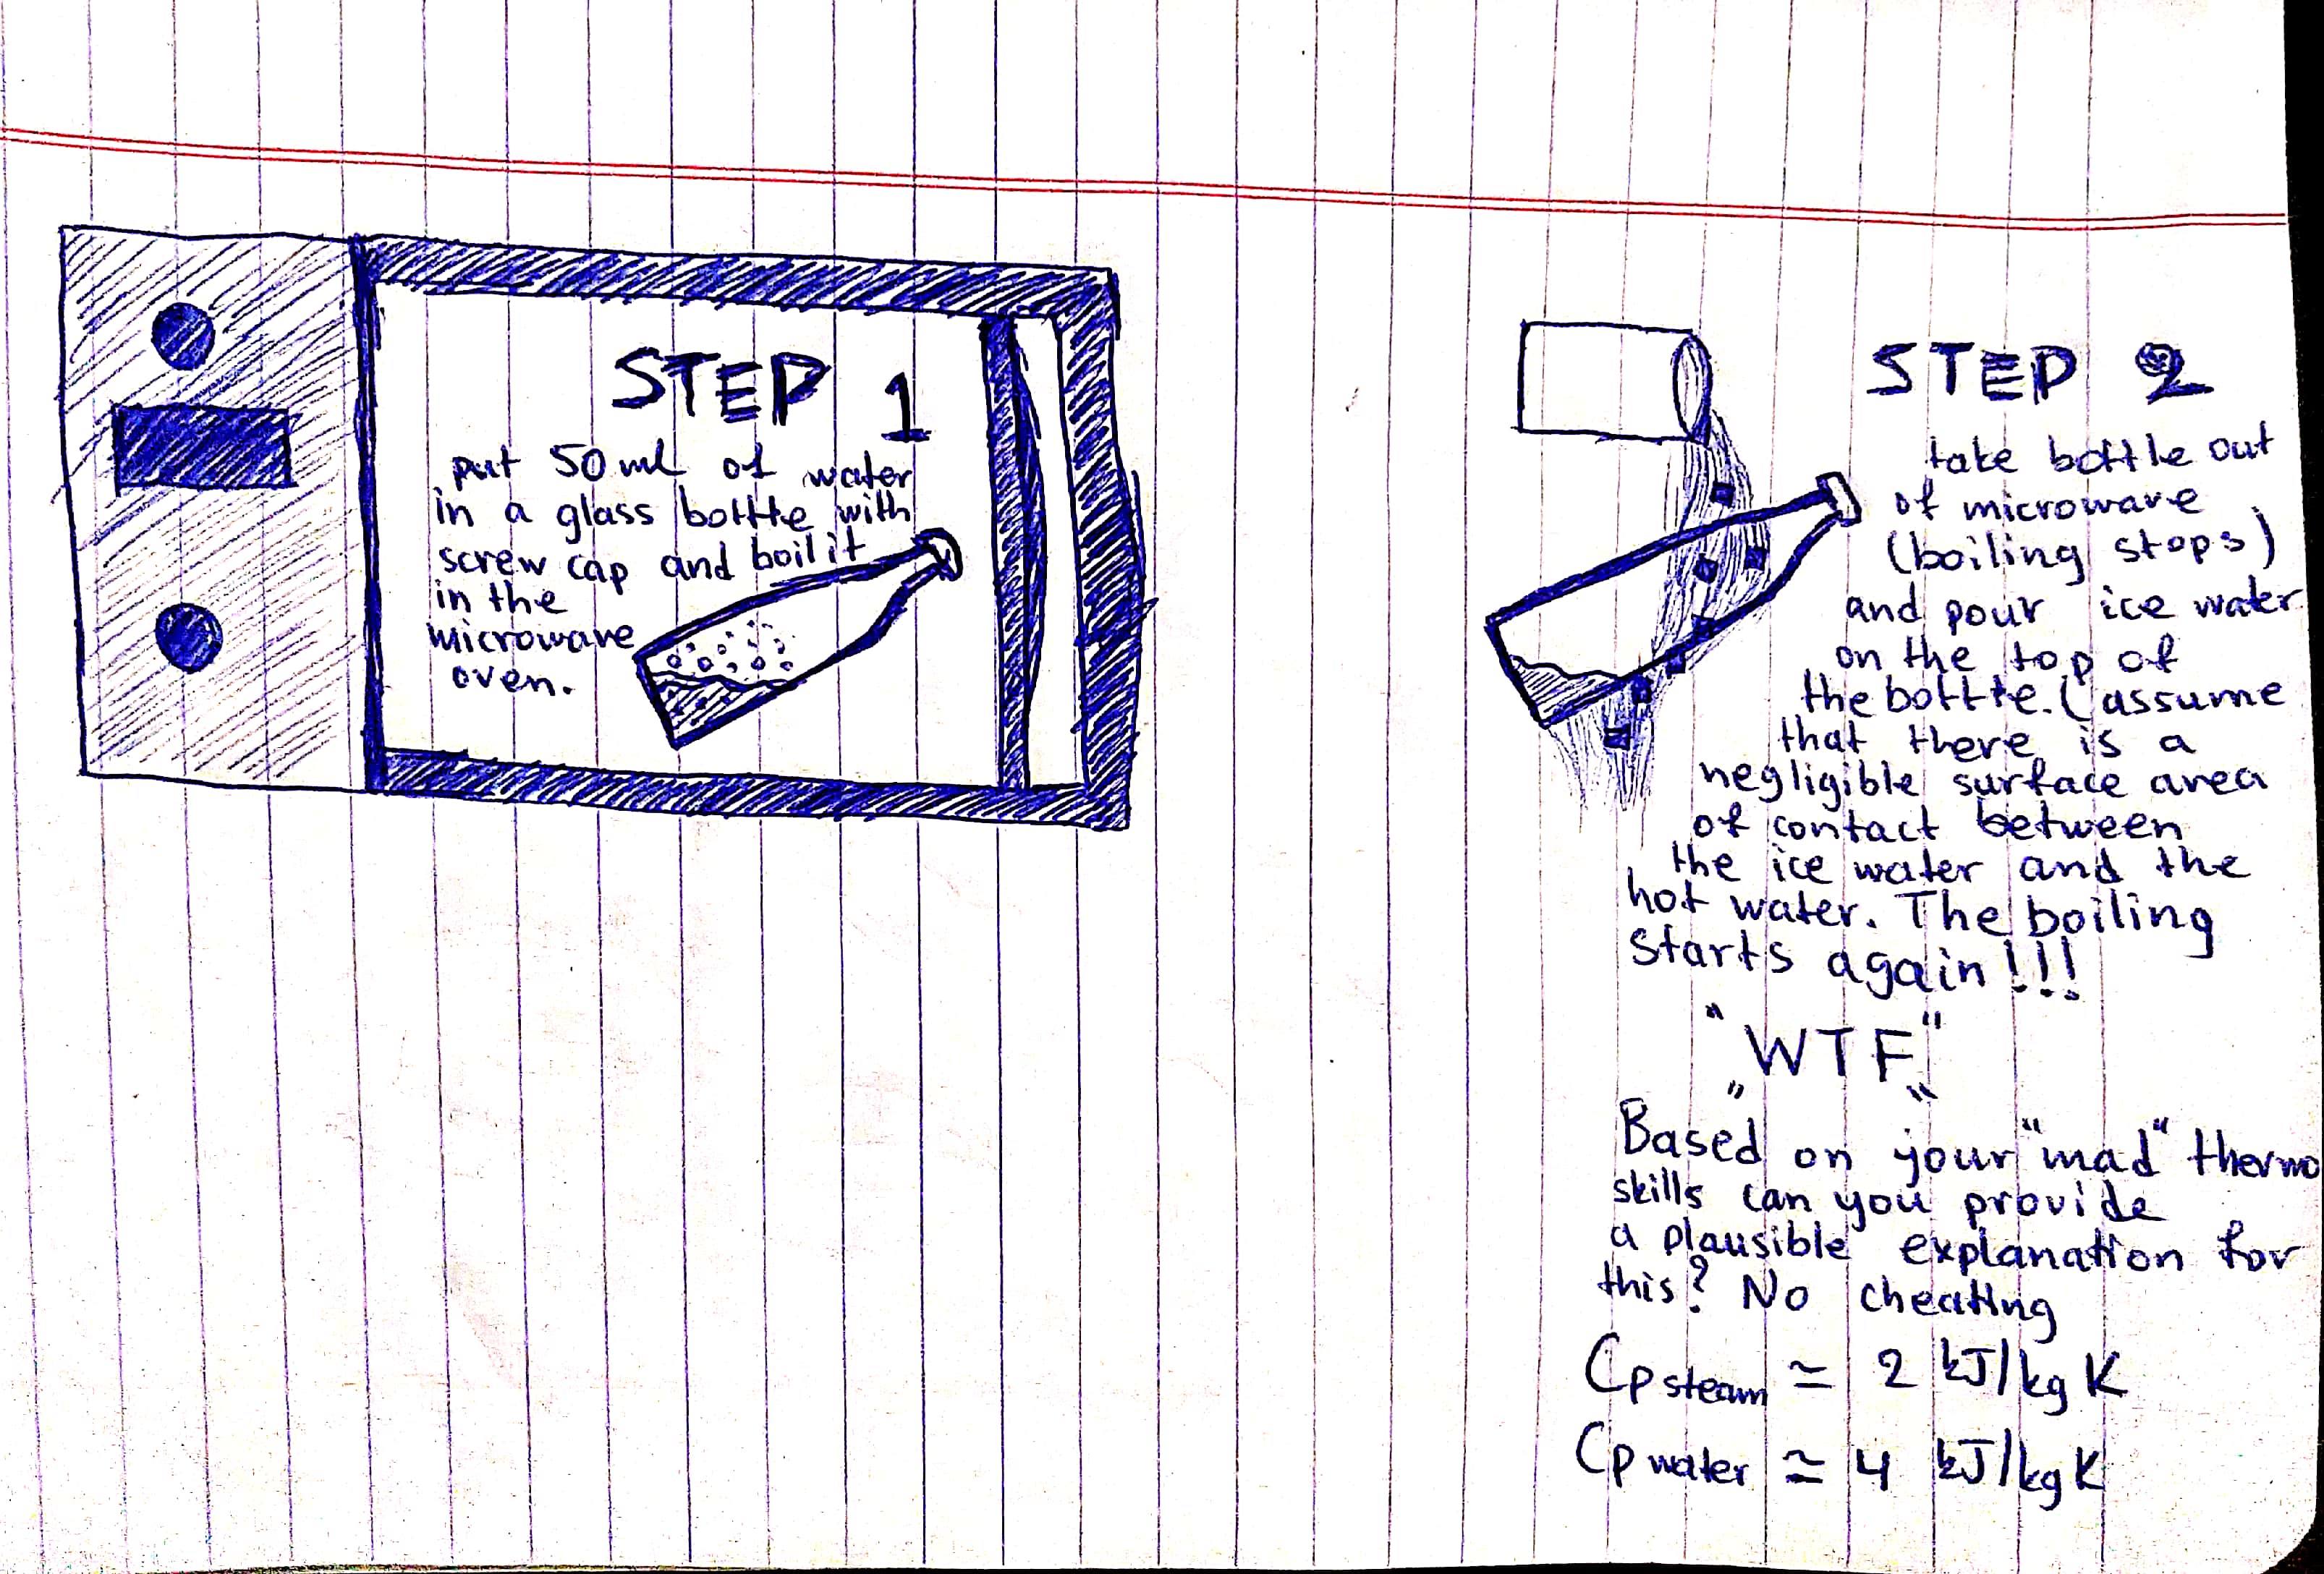 STEP 1
put 50 ml of water
in a glass bottle with
screw cap and boil it
in the
microwave
oven.
STEP 2
take bottle out
of microwave
(boiling stops)
and pour ice water
on the top of
the bottle. (assume
that there is a
negligible surface area
of contact between
the ice water and the
hot water. The boiling
starts again!!!
"WTF"
Based on your "mad" thermo
skills can you provide
a plausible explanation for
this? No cheating
Cp steam ≃ 2 kJ/kg K
Cp water ≃ 4 kJ/kg K